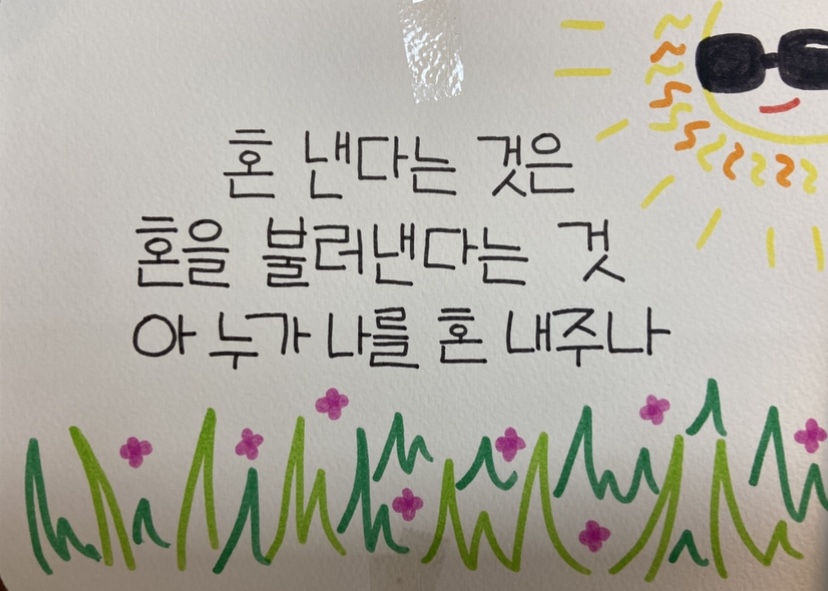 혼 낸다는 것은
혼을 불러낸다는 것
아 누가 나를 혼 내주나